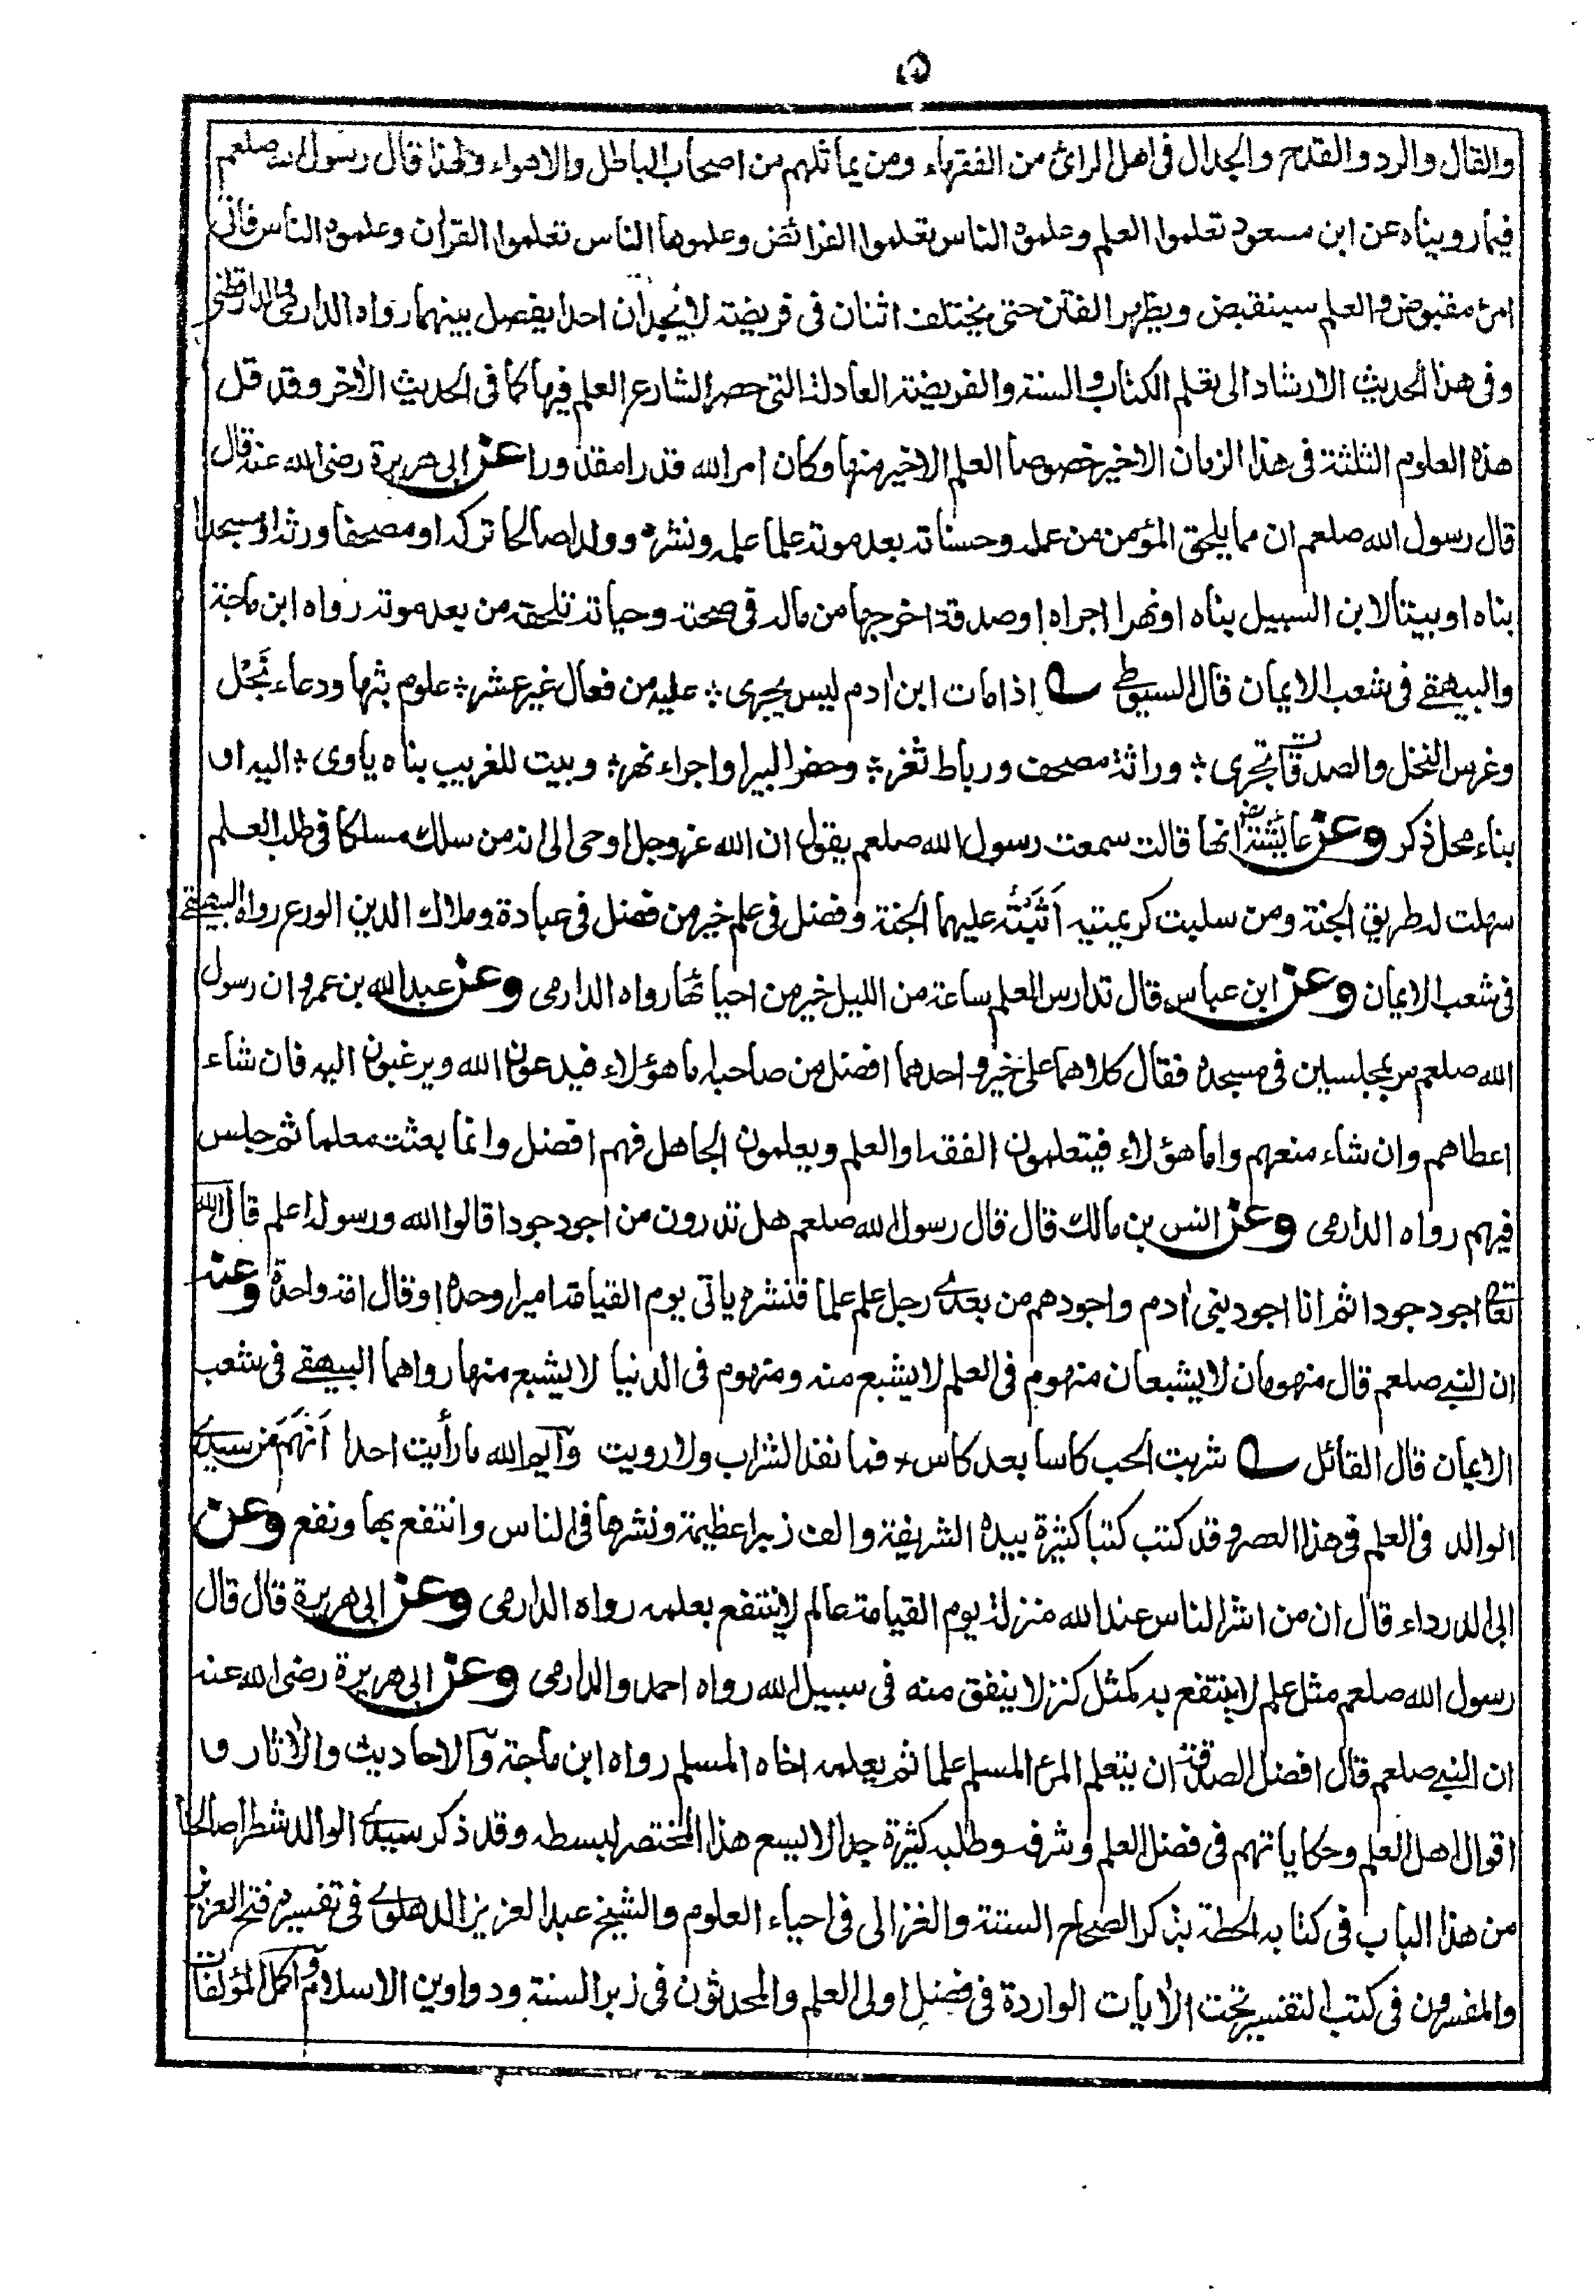 ۵
والقال والرد والقدح والجدال فى اهل الرائ من الفقهاء ومن يماثلهم من اصحاب الباطل والاهواء ولهذا قال رسول الله صلعم
فيما رويناه عن ابن مسعود تعلموا العلم وعلموه الناس تعلموا الفرائض وعلموها الناس تعلموا القرأن وعلموه الناس فانى
امرئ مقبوض والعلم سينقبض ويظهر الفتن حتى يختلف اثنان فى فريضة لا يجدان احدا يفصل بينهما رواه الدارمى والدارقطنى
وفى هذا الحديث الارشاد الى تعلم الكتاب والسنة والفريضة العادلة التى حصر الشارع العلم فيها كما فى الحديث الأخر وقد قل
هذه العلوم الثلثة فى هذا الزمان الاخير خصوصا العلم الاخير منها وكان امر الله قدرا مقدورا عن ابى هريرة رضى الله عنه قال
قال رسول الله صلعم ان مما يلحق المؤمن من عمله وحسناته بعد موته علما علمه ونشره وولدا صالحا تركه او مصحفا ورثه او مسجدا
بناه او بيتا لابن السبيل بناه او نهرا اجراه او صدقة اخرجها من ماله فى صحته وحياته تلحقه من بعد موته رواه ابن ماجة
والبيهقے فى شعب الايمان قال السيوطے اذا مات ابن أدم ليس يجرى ؞ عليه من فعال غير عشر ؞ علوم بثها ودعاء نَجْل
وغرس النخل والصدقات تجرى ؞ وراثة مصحف ورباط ثغر ؞ وحفر البير او اجراء نهر ؞ وبيت للغريب بناه ياوى ؞ اليه او
بناء محل ذكر وعن عايشة رض انها قالت سمعت رسول الله صلعم يقول ان الله عز وجل اوحى الى انه من سلك مسلكا فى طلب العلم
سهلت له طريق الجنة ومن سلبت كريمتيه اَثَبْتُه عليهما الجنة وفضل فى علم خير من فضل فى عبادة وملاك الدين الورع رواه البيهقے
فى شعب الايمان وعن ابن عباس قال تدارس العلم ساعة من الليل خير من احيائها رواه الدارمى وعن عبد الله بن عمرو ان رسول
الله صلعم مر بمجلسين فى مسجده فقال كلاهما على خير واحدهما افضل من صاحبه اما هؤلاء فيدعون الله ويرغبون اليه فان شاء
اعطاهم وان شاء منعهم واما هؤلاء فيتعلمون الفقه او العلم ويعلمون الجاهل فهم افضل وانما بعثت معلما ثم جلس
فيهم رواه الدارمى وعن انس بن مالك قال قال رسول الله صلعم هل تدرون من اجود جودا قالوا الله ورسوله اعلم قال الله
تعالى اجود جودا ثم انا اجود بنى أدم واجودهم من بعدے رجل علم علما فنشره ياتى يوم القيامة اميرا وحده او قال امة واحدة وعنه
ان النبے صلعم قال منهومان لا يشبعان منهوم فى العلم لا يشبع منه ومنهوم فى الدنيا لا يشبع منها رواهما البيهقے فى شعب
الايمان قال القائل شربت الحب كاسا بعد كاس ٭ فما نفذ الشراب ولا رويت وايم الله ما رأيت احدا اَنْهَمَ من سيدے
الوالد فى العلم فى هذا العصر وقد كتب كتبا كثيرة بيده الشريفة والف زبرا عظيمة ونشرها فى الناس وانتفع بها ونفع وعن
ابى الدرداء قال ان من اشر الناس عند الله منزلة يوم القيامة عالم لا ينتفع بعلمه رواه الدارمى وعن ابى هريرة قال قال
رسول الله صلعم مثل علم لا ينتفع به كمثل كنز لا ينفق منه فى سبيل الله رواه احمد والدارمى وعن ابى هريرة رضى الله عنه
ان النبے صلعم قال افضل الصدقة ان يتعلم المرء المسلم علما ثم يعلمه اخاه المسلم رواه ابن ماجة والاحاديث والأثار و
اقوال اهل العلم وحكاياتهم فى فضل العلم وشرفه وطلبه كثيرة جدا لا يسع هذا المختصر لبسطه وقد ذكر سيدے الوالد شطرا صالحا
من هذا الباب فى كتابه الحطة بذكر الصحاح الستة والغزالى فى احياء العلوم والشيخ عبد العزيز الدهلوے فى تفسيره فتح العزيز
والمفسرون فى كتب التفسير تحت الأيات الواردة فى فضل اولى العلم والمحدثون فى زبر السنة ودواوين الاسلام واكمل المؤلفات